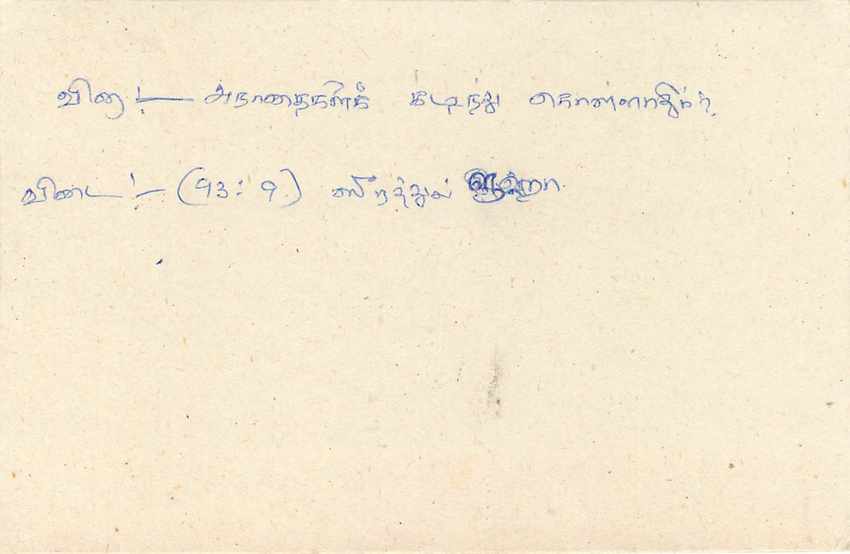 வினா:— அநாதைகளைக் கடிந்து கொள்ளாதீர்.
விடை:— (93:9) ஸூரத்துல் ளுஹா.